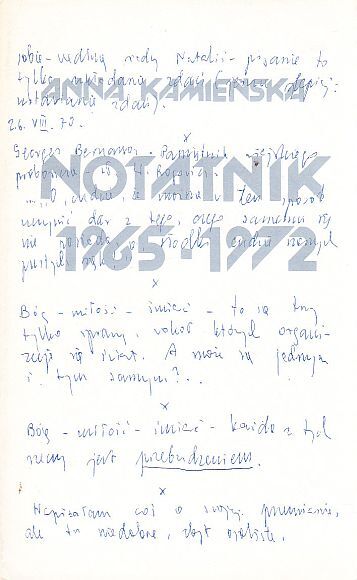 sobie - według rady Natalii - pisanie to
tylko układanie zdań (często lepiej:
ustawianie zdań).
26. VIII. 70.
ANNA KAMIEŃSKA
x
Georges Bernanos - Pamiętnik wiejskiego
proboszcza - W. W. Rogowicz
NOTATNIK
"...O, cudzie, że można w ten sposób
uczynić dar z tego, czego samemu się
nie posiada, o słodki cudzie naszych
pustych rąk!"
1965·1972
x
Bóg - miłość - śmierć - to są trzy
tylko sprawy, wokół których organi-
zuje się świat. A może są jednym
i tym samym?..
x
Bóg - miłość - śmierć - każda z tych
rzeczy jest przebudzeniem.
x
Napisałam coś o swojej przemianie,
ale to niedobre, zbyt osobiste.